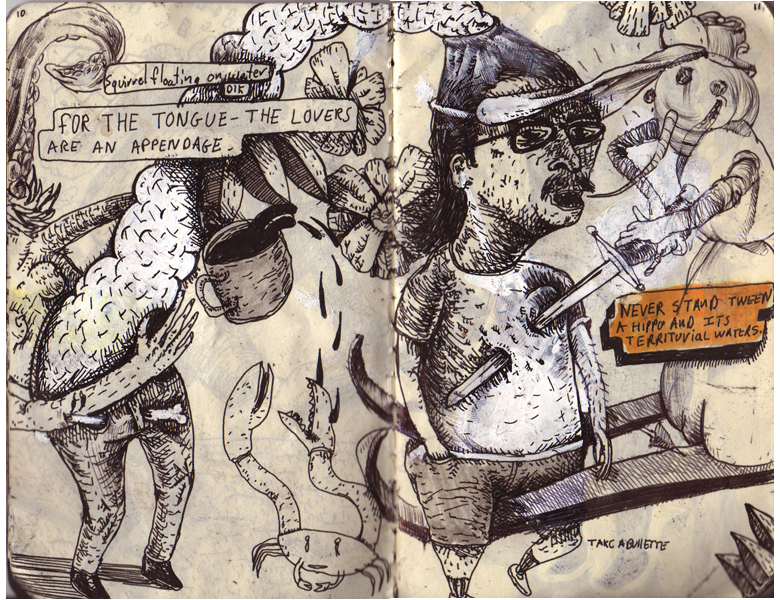 10
11
Squirrel floating on water
DIK
FOR THE TONGUE - THE LOVERS
ARE AN APPENDAGE.
NEVER STAND TWEEN
A HIPPO AND ITS
TERRITUVIAL WATERS.
TAKE A